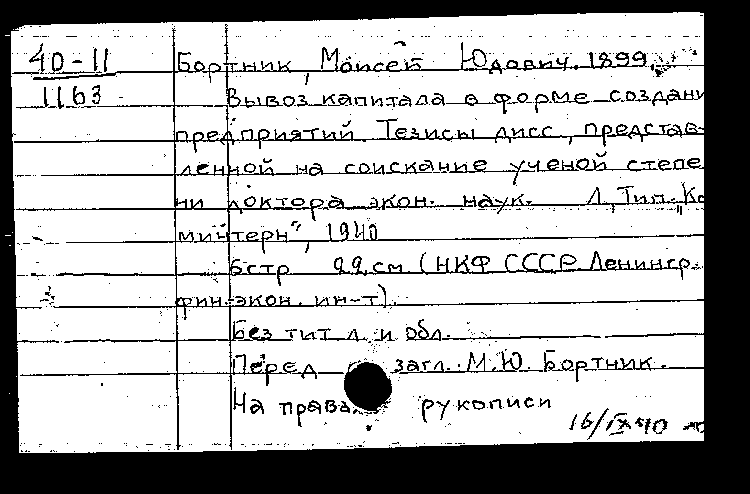 40-11
1163
Бортник, Моисей Юдавич. 1899
Вывоз капитала в форме создани
предприятий. Тезисы дисс., представ-
ленной на соискание ученой степе
ни доктора экон. наук. Л., Тип. „Ко
минтерн", 1940
6 стр 22 см (НКФ СССР. Ленингр.
фин.-экон. ин-т).
Без тит. л. и обл.
Перед загл.: М.Ю. Бортник.
На права рукописи
16/IX 40